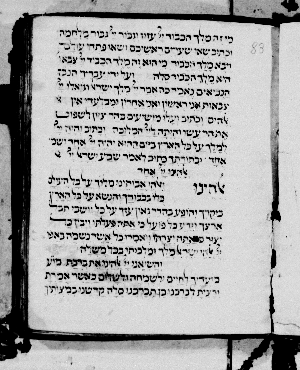 מי זה מלך הכבוד יי עזוז וגבור יי גבור מלחמה
וכתוב שאו שערים ראשיכם ושאו פתחי עולם
ויבא מלך הכבוד מי הוא זה מלך הכבוד יי צבאות
הוא מלך הכבוד סלה ועל ידי עבדיך
הנביאים כאמור כה אמר יי מלך ישראל וגואלו יי
צבאות אני ראשון ואני אחרון ומבלעדי אין
אלהים וכתוב ועלו מושיעים בהר ציון לשפוט
את הר עשו והיתה ליי המלוכה וכתוב והיה יי
למלך על כל הארץ ביום ההוא יהיה יי אחד ושמו
אחד ובתורתך כתוב לאמר שמע ישראל יי
אלהינו יי אחד
אלהינו ואלהי אבותינו מלוך על כל העולם
כלו בכבודך והנשא על כל הארץ
ביקרך והופע בהדר גאון עזך על כל יושבי תבל
ארצך וידע כל פעול כי אתה פעלתו ויבין כל
יצור כי אתה יצרתו ויאמר כל אשר נשמה באפו
יי אלהי ישראל מלך ומלכותו בכל משלה
והשיאנו יי אלהינו את ברכת
מועדיך לחיים לשמחה ולשלום כאשר אמרת
ורצית לברכנו כן תברכנו סלה קדשנו במצותיך
83